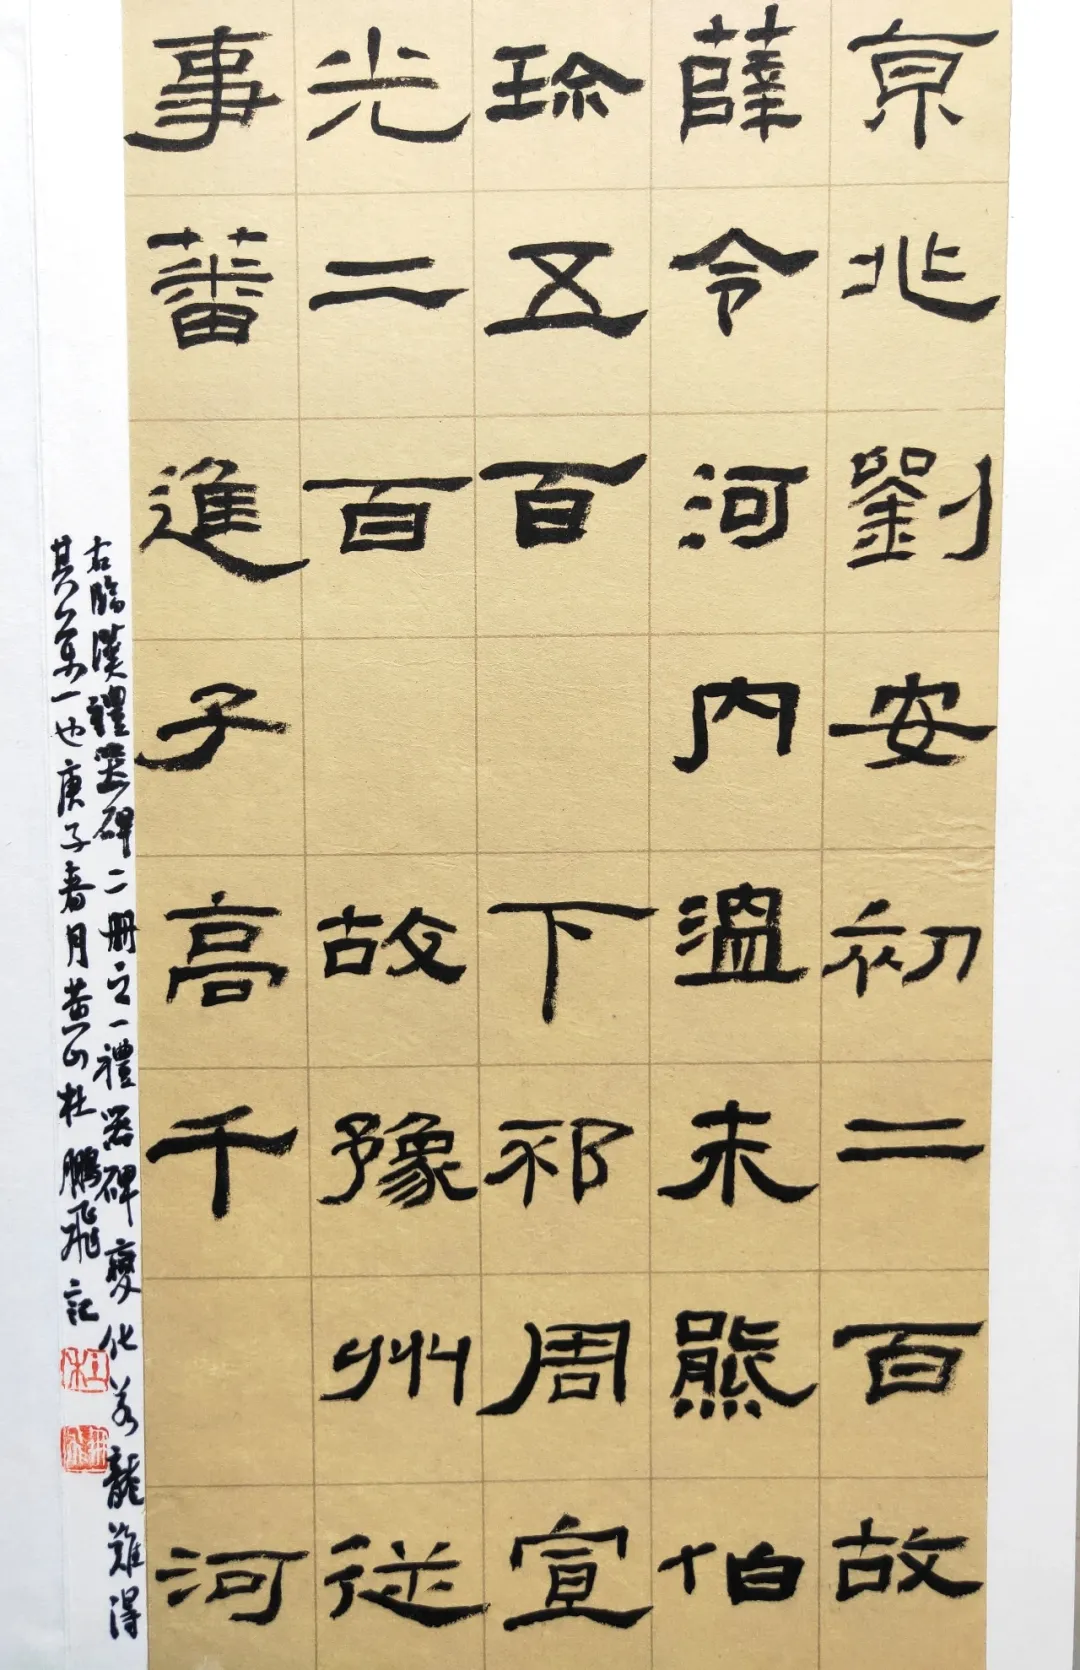 京兆劉安初二百故
薛令河內溫朱熊伯
珍五百下邳周宣
光二百故豫州從
事蕃進子高千河
右臨漢禮器碑二冊之一禮器碑變化若龍難得
其萬一也庚子春月黄山杜鵬飛記
杜